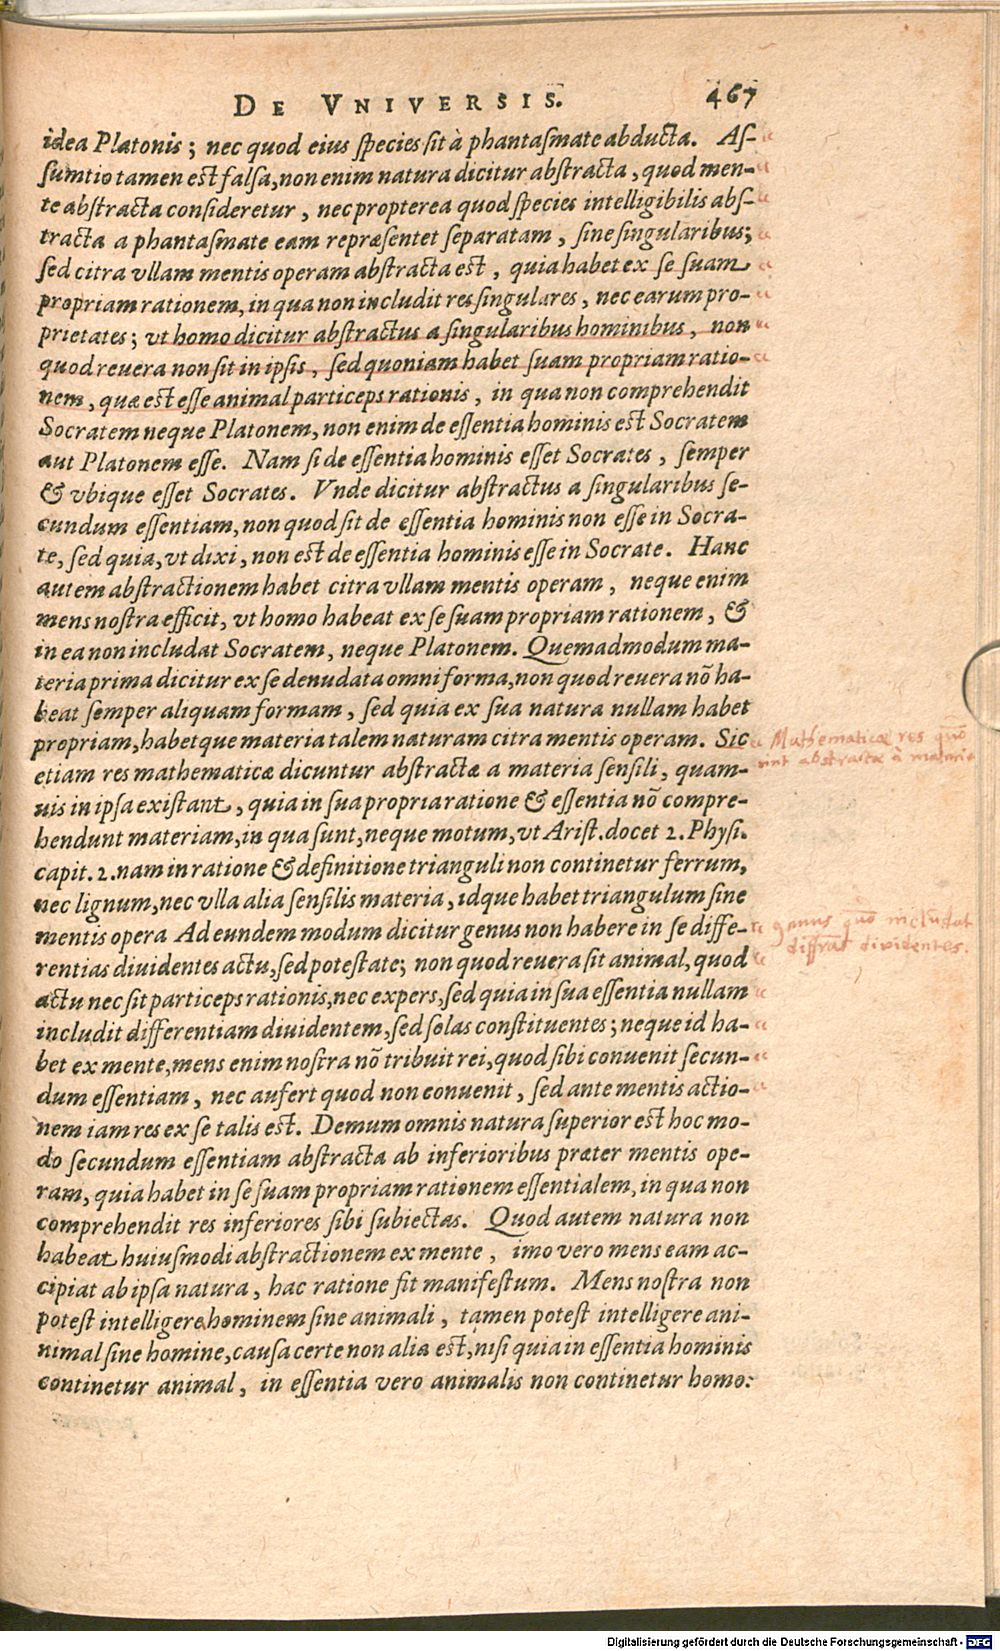 DE VNIVERSIS. 467
idea Platonis; nec quod eius ſpecies ſit à phantaſmate abducta. Aſ-
ſumtio tamen est falſa, non enim natura dicitur abſtracta, quod men-
te abſtracta conſideretur, nec propterea quod ſpecies intelligibilis abſ-
tracta a phantaſmate eam repræſentet ſeparatam, ſine ſingularibus;
ſed citra vllam mentis operam abſtracta est, quia habet ex ſe ſuam
propriam rationem, in qua non includit res ſingulares, nec earum pro-
prietates; vt homo dicitur abſtractus a ſingularibus hominibus, non
quod reuera non ſit in ipſis, ſed quoniam habet ſuam propriam ratio-
nem, quæ est eſſe animal particeps rationis, in qua non comprehendit
Socratem neque Platonem, non enim de eſſentia hominis est Socratem
aut Platonem eſſe. Nam ſi de eſſentia hominis eſſet Socrates, ſemper
& vbique eſſet Socrates. Vnde dicitur abſtractus a ſingularibus ſe-
cundum eſſentiam, non quod ſit de eſſentia hominis non eſſe in Socra-
te, ſed quia, vt dixi, non est de eſſentia hominis eſſe in Socrate. Hanc
autem abſtractionem habet citra vllam mentis operam, neque enim
mens noſtra efficit, vt homo habeat ex ſe ſuam propriam rationem, &
in ea non includat Socratem, neque Platonem. Quemadmodum ma-
teria prima dicitur ex ſe denudata omni forma, non quod reuera nõ ha-
beat ſemper aliquam formam, ſed quia ex ſua natura nullam habet
propriam, habetque materia talem naturam citra mentis operam. Sic
etiam res mathematicæ dicuntur abſtractæ a materia ſenſili, quam-
uis in ipſa exiſtant, quia in ſua propria ratione & eſſentia nõ compre-
hendunt materiam, in qua ſunt, neque motum, vt Ariſt. docet 2. Phyſi.
capit. 2. nam in ratione & definitione trianguli non continetur ferrum,
nec lignum, nec vlla alia ſenſilis materia, idque habet triangulum ſine
mentis opera Ad eundem modum dicitur genus non habere in ſe diffe-
rentias diuidentes actu, ſed poteſtate; non quod reuera ſit animal, quod
actu nec ſit particeps rationis, nec expers, ſed quia in ſua eſſentia nullam
includit differentiam diuidentem, ſed ſolas conſtituentes; neque id ha-
bet ex mente, mens enim noſtra nõ tribuit rei, quod ſibi conuenit ſecun-
dum eſſentiam, nec aufert quod non conuenit, ſed ante mentis actio-
nem iam res ex ſe talis est. Demum omnis natura ſuperior est hoc mo-
do ſecundum eſſentiam abſtracta ab inferioribus præter mentis ope-
ram, quia habet in ſe ſuam propriam rationem eſſentialem, in qua non
comprehendit res inferiores ſibi ſubiectas. Quod autem natura non
habeat huiuſmodi abſtractionem ex mente, imo vero mens eam ac-
cipiat ab ipſa natura, hac ratione fit manifeſtum. Mens noſtra non
poteſt intelligere hominem ſine animali, tamen poteſt intelligere ani-
nimal ſine homine, cauſa certe non alia est, niſi quia in eſſentia hominis
continetur animal, in eſſentia vero animalis non continetur homo:
Mathematicæ res quõ
sint abstractæ à materia
genus quõ includat
diffrãs dividentes.
Digitalisierung gefördert durch die Deutsche Forschungsgemeinschaft - DFG